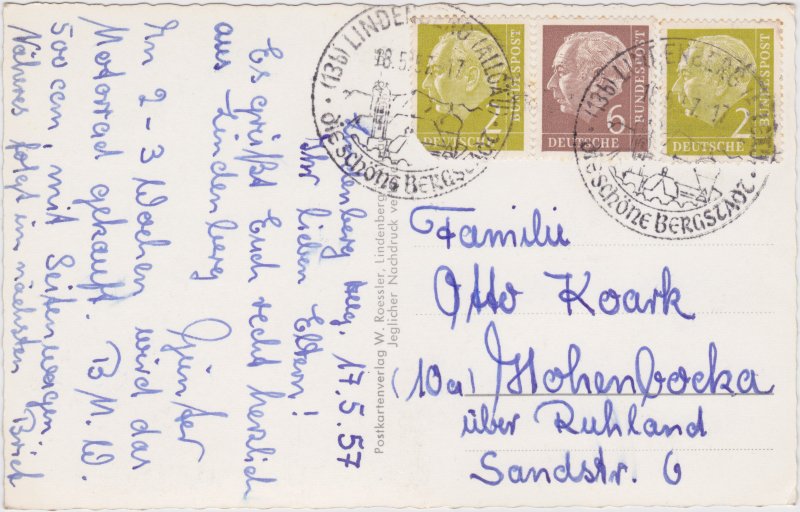 Lindenberg Allg. 17.5.57
Ihr lieben Eltern!
Es grüßt Euch recht herzlich
aus Lindenberg Günter
In 2-3 Wochen wird das
Motorrad gekauft. B.M.W.
500 ccm mit Seitenwagen.
Näheres folgt im nächsten Brief
Postkartenverlag W. Roessler, Lindenberg
Jeglicher Nachdruck
(13b) LINDENBERG (ALLGÄU)
18.5.57-17
die schöne BERGSTADT
2
DEUTSCHE BUNDESPOST
6
DEUTSCHE BUNDESPOST
2
DEUTSCHE BUNDESPOST
(13b) LINDENBERG
17
die schöne BERGSTADT
Familie
Otto Koark
(10a) Hohenbocka
über Ruhland
Sandstr. 6